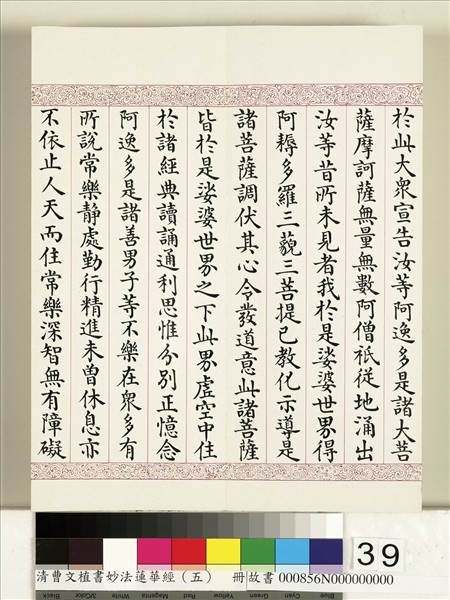 於此大眾宣告汝等阿逸多是諸大菩
薩摩訶薩無量無數阿僧祇從地涌出
汝等昔所未見者我於是娑婆世界得
阿耨多羅三藐三菩提已教化示導是
諸菩薩調伏其心令發道意此諸菩薩
皆於是娑婆世界之下此界虛空中住
於諸經典讀誦通利思惟分別正憶念
阿逸多是諸善男子等不樂在眾多有
所說常樂靜處勤行精進未曾休息亦
不依止人天而住常樂深智無有障礙
39
清曹文植書妙法蓮華經（五） 冊故書 000856N000000000
Black 3/Color White Magenta Red Yellow Green Cyan Blue